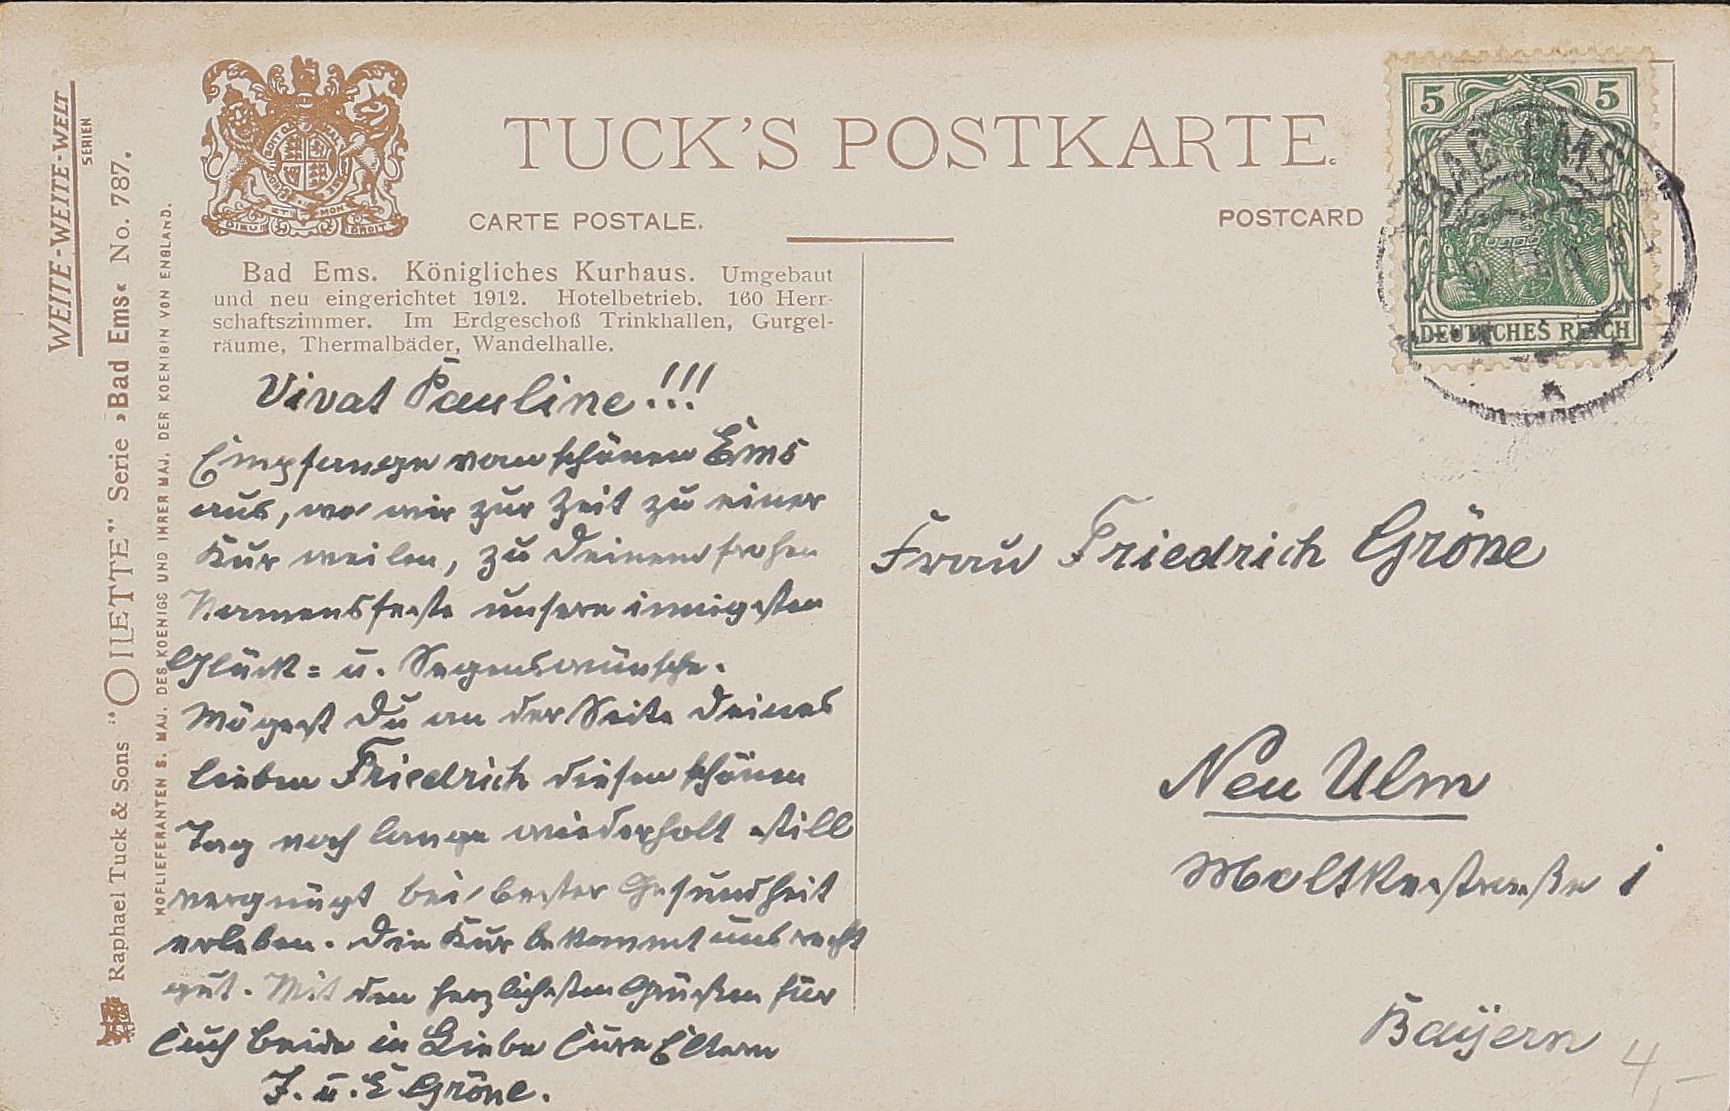 WEITE-WEITE-WELT
SERIEN
Raphael Tuck & Sons "OILETTE" Serie »Bad Ems« No. 787.
HOFLIEFERANTEN S. MAJ. DES KOENIGS UND IHRER MAJ. DER KOENIGIN VON ENGLAND.
DIEU ET MON DROIT
TUCK'S POSTKARTE.
CARTE POSTALE.
POSTCARD
5 5
BAD EMS
DEUTSCHES REICH
Bad Ems. Königliches Kurhaus. Umgebaut
und neu eingerichtet 1912. Hotelbetrieb. 160 Herr-
schaftszimmer. Im Erdgeschoß Trinkhallen, Gurgel-
räume, Thermalbäder, Wandelhalle.
Vivat Pauline!!!
Empfange vom schönen Ems
aus, wo wir zur Zeit zu einer
Kur weilen, zu Deinem frohen
Namensfeste unsere innigsten
Glück= u. Segenswünsche.
Mögest Du an der Seite Deines
lieben Friedrich diesen schönen
Tag noch lange wiederholt still
vergnügt bei bester Gesundheit
erleben. Die Kur bekommt uns recht
gut. Mit den herzlichsten Grüßen für
Euch beide in Liebe Eure Eltern
F. u. E Gröne.
Frau Friedrich Gröne
Neu Ulm
Moltkestraße 1
Bayern
4,-